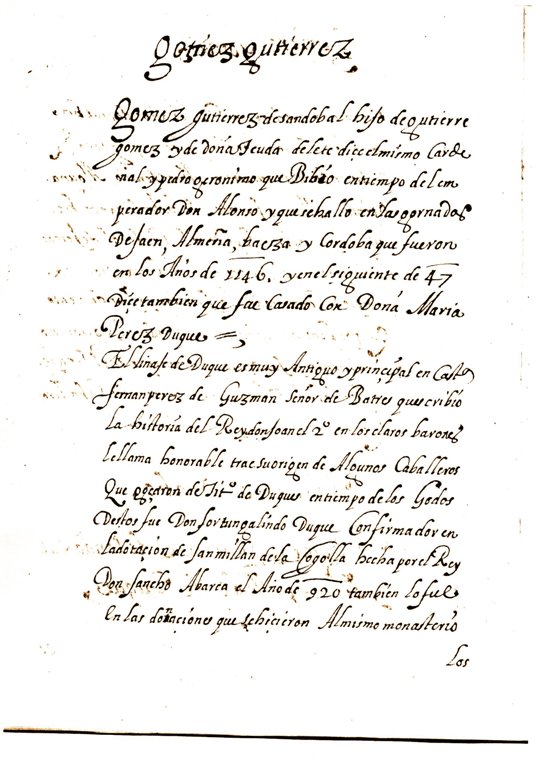 Gomez gutierrez
Gomez gutierrez de sandobal hijo de gutierre
gomez y de doña Teuda deste dice el mismo Carde
ñal y pedro geronimo que Bibio en tiempo del em
perador Don Alonso y que se hallo en las gornadas
De Jaen, Almeria, baeza y Cordoba que fueron
en los Años de 1146. y en el siguiente de 47
Dice tambien que fue Casado Con Doña Maria
Perez Duque =,
El linaje de Duque es muy Antiguo y principal en Cast.ª
fernan perez de Guzman Señor de Batres que scribio
la historia del Rey don Joan el 2º en los claros barones
le llama honorable trae su origen de Algunos Caballeros
Que goçaron de Titº de Duques en tiempo de los Godos
Destos fue Don fortun galindo Duque Confirmador en
la dotacion de san millan de la Cogolla hecha por el Rey
Don sancho Abarca el Año de 920 tambien lo fue
En las donaciones que se hicieron Al mismo monasterio
los